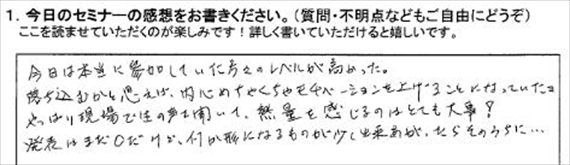 1. 今日のセミナーの感想をお書きください。（質問・不明点などもご自由にどうぞ）
ここを読ませていただくのが楽しみです！詳しく書いていただけると嬉しいです。
今日は本当に参加していた方々のレベルが高かった。
落ち込むかと思えば、内心めちゃくちゃモチベーションを上げることになっていた
やっぱり現場で生の声を聞いて、熱量を感じるのはとても大事！
発表はまだ0だけど、何か形になるものが少し出来あがったらそのうちに…